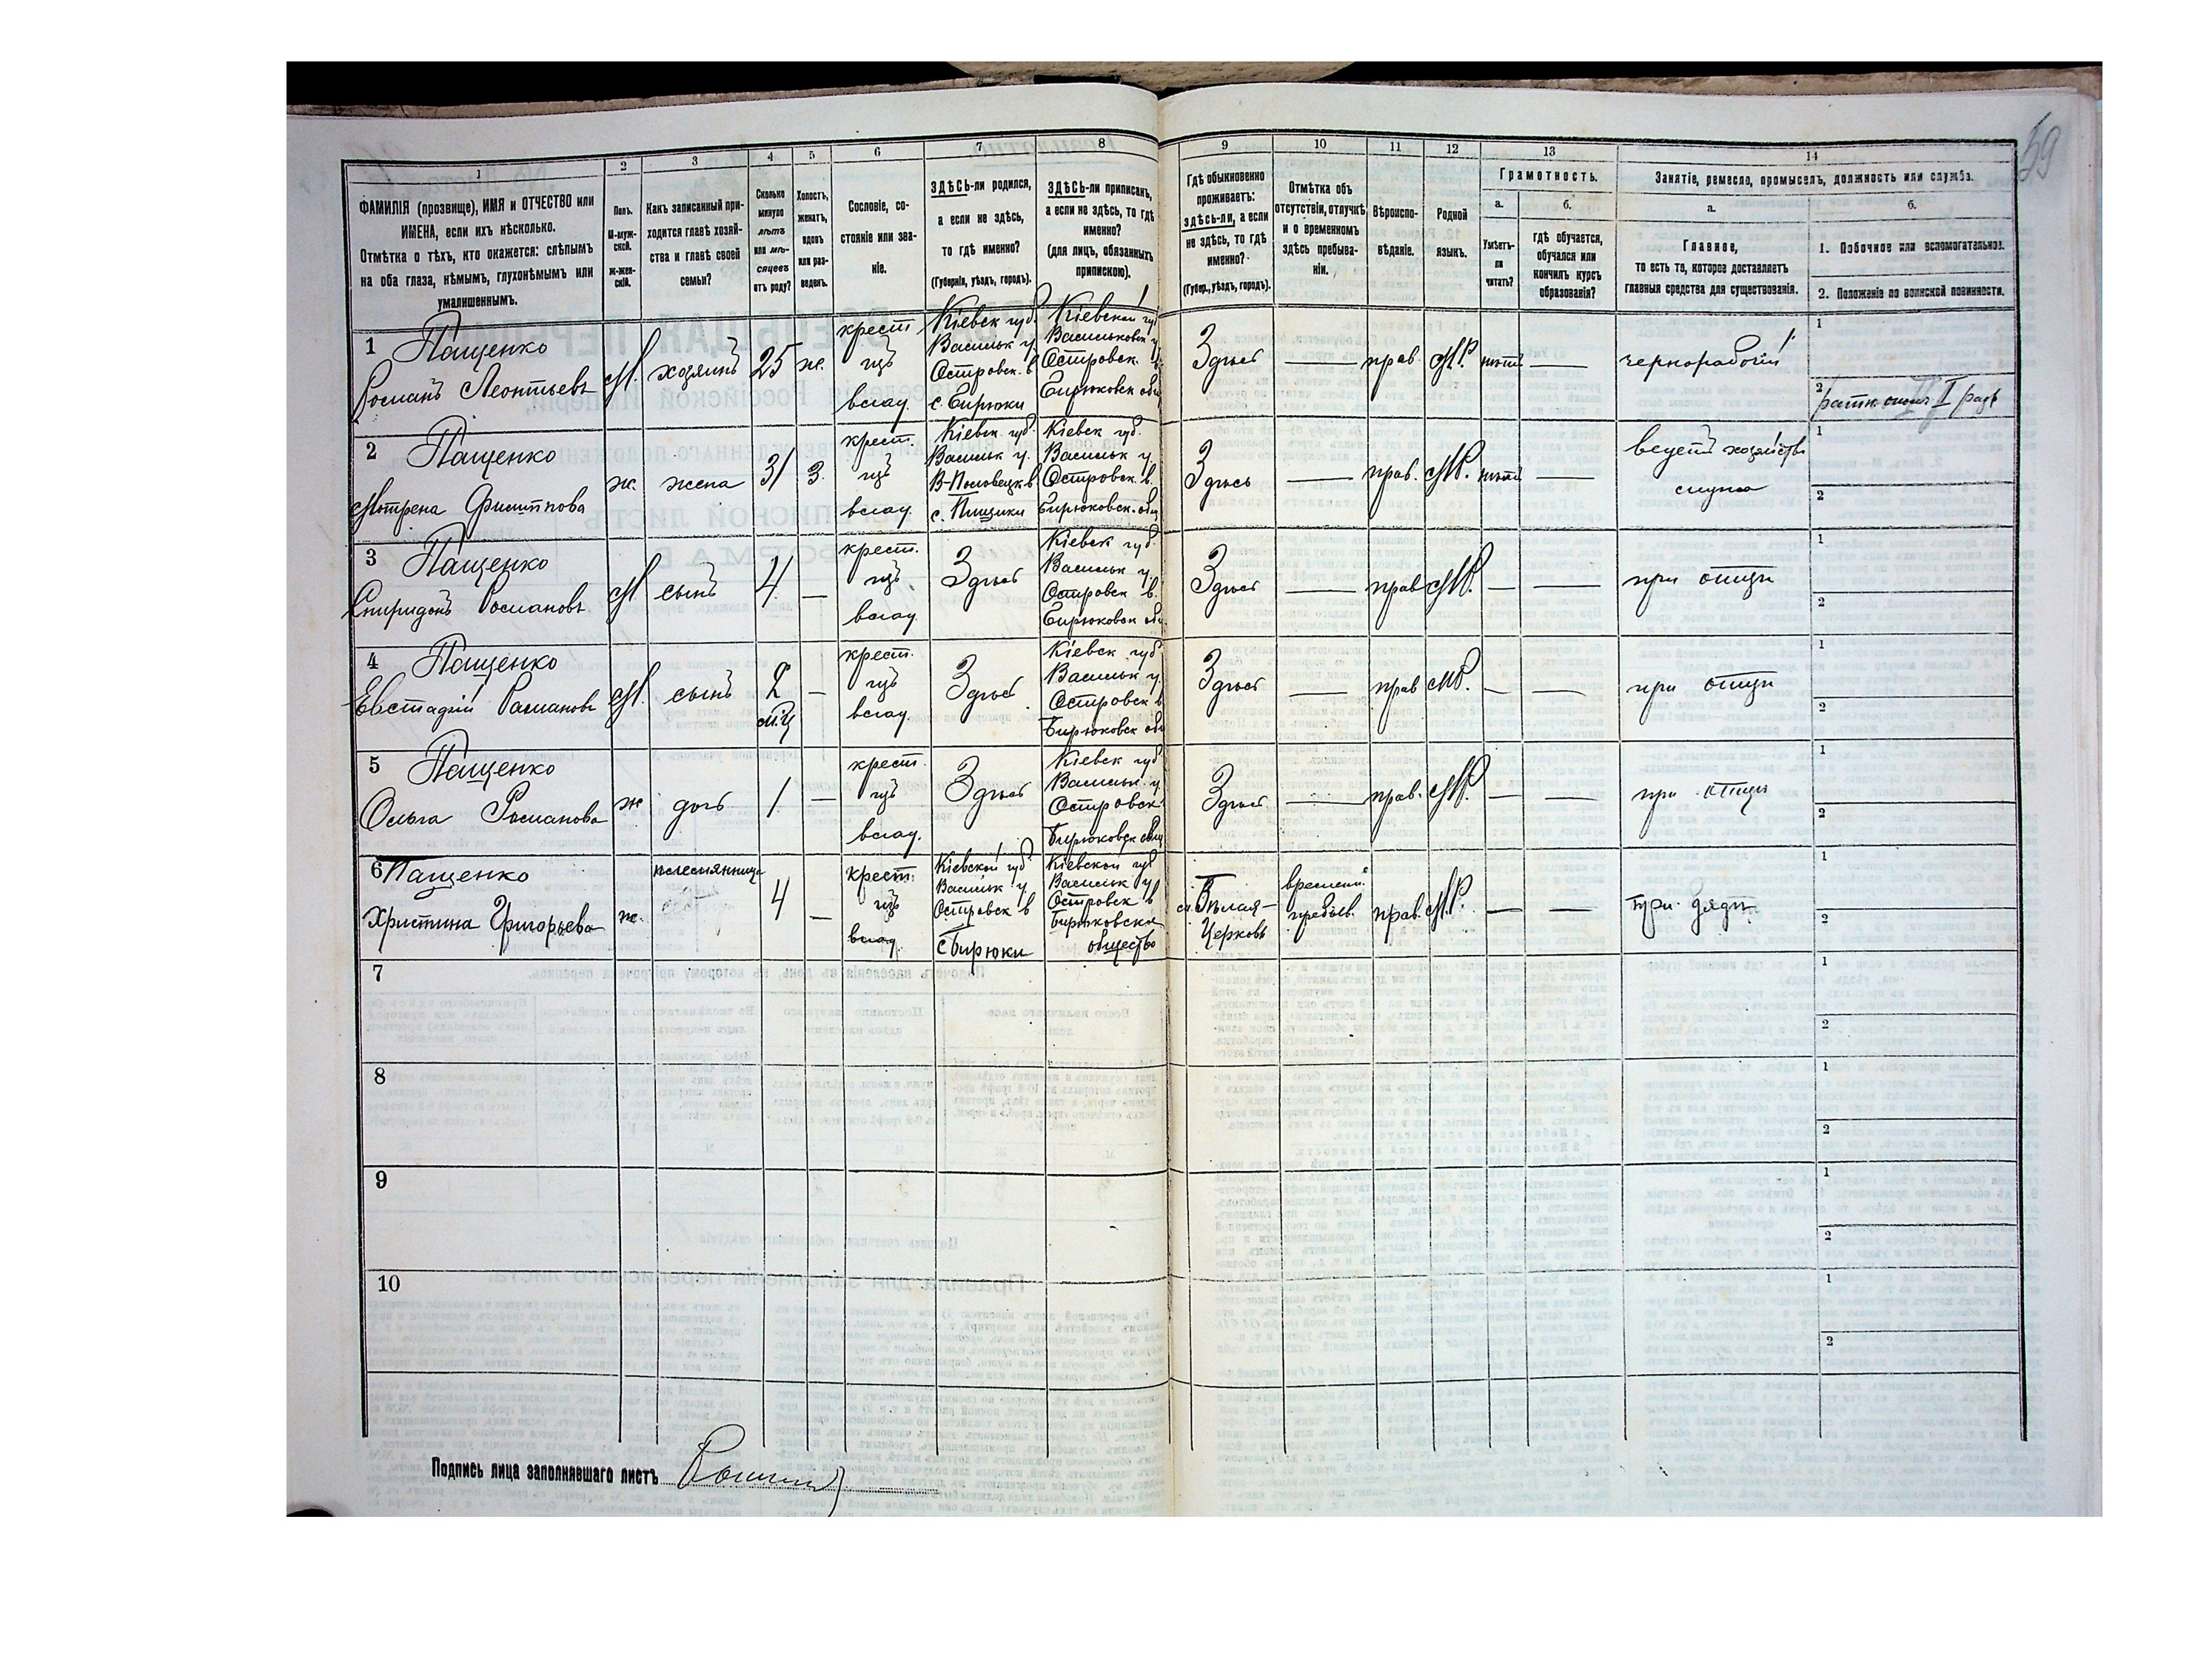 59
1 2 3 4 5 6 7 8 9 10 11 12 13 14
ФАМИЛІЯ (прозвище), ИМЯ и ОТЧЕСТВО или
ИМЕНА, если ихъ нѣсколько.
Отмѣтка о тѣхъ, кто окажется: слѣпымъ
на оба глаза, нѣмымъ, глухонѣмымъ или
умалишеннымъ.
Полъ.
М-муж-
ской.
Ж-жен-
скій.
Какъ записанный при-
ходится главѣ хозяй-
ства и главѣ своей
семьи?
Сколько
минуло
лѣтъ
или мѣ-
сяцевъ
отъ роду?
Холостъ,
женатъ,
вдовъ
или раз-
веденъ.
Сословіе, со-
стояніе или зва-
ніе.
ЗДѢСЬ-ли родился,
а если не здѣсь,
то гдѣ именно?
(Губернія, уѣздъ, городъ).
ЗДѢСЬ-ли приписанъ,
а если не здѣсь, то гдѣ
именно?
(для лицъ, обязанныхъ
припискою).
Гдѣ обыкновенно
проживаетъ:
здѣсь-ли, а если
не здѣсь, то гдѣ
именно?
(Губер., уѣздъ, городъ).
Отмѣтка объ
отсутствіи, отлучкѣ
и о временномъ
здѣсь пребыва-
ніи.
Вѣроиспо-
вѣданіе.
Родной
языкъ.
Грамотность.
а.
Умѣетъ-
ли
читать?
б.
гдѣ обучается,
обучался или
кончилъ курсъ
образованія?
Занятіе, ремесло, промыселъ, должность или служба.
а.
Главное,
то есть то, которое доставляетъ
главныя средства для существованія.
б.
1. Побочное или вспомогательное.
2. Положеніе по воинской повинности.
1 Пащенко
Романъ Леонтьевъ
М.
хозяинъ
25
ж.
крест
изъ
влад.
Кіевск губ.
Васильк у.
Островск. в
с. Бирюки
Кіевской губ
Васильковск у
Островск. в.
Бирюковск общ
Здѣсь
—
прав.
МР.
нѣтъ
—
чернорабочій
1
2
ратн. ополч II разр
2 Пащенко
Мотрена Филиппова
ж.
жена
31
З.
крест.
изъ
влад.
Кіевск. губ.
Васильк у.
В-Половецк в
с. Пищики
Кіевск губ.
Васильк у.
Островск. в.
Бирюковск. общ
Здѣсь
—
прав.
МР.
нѣтъ
—
ведетъ хозяйство
1
2
3 Пащенко
Спиридонъ Романовъ
М
сынъ
4
—
крест.
изъ
влад.
Здѣсь
Кіевск губ.
Васильк у.
Островск в.
Бирюковск общ
Здѣсь
—
прав
МР.
—
—
при отцѣ
1
2
4 Пащенко
Евстафій Романовъ
М.
сынъ
2
м-ц
—
крест.
изъ
влад.
Здѣсь
Кіевск губ
Васильк у.
Островск в
Бирюковск общ
Здѣсь
—
прав
МР.
—
—
при отцѣ
1
2
5 Пащенко
Ольга Романова
ж
дочь
1
—
крест.
изъ
влад.
Здѣсь
Кіевск губ
Васильк. у
Островск
Бирюковск общ
Здѣсь
—
прав.
МР.
—
—
при отцѣ
1
2
6 Пащенко
Христина Григорьева
ж.
племянница
4
—
крест.
изъ
влад.
Кіевской губ
Васильк у
Островск в
с Бирюки
Кіевской губ
Васильк у
Островск в
Бирюковско
общество
м. Бѣлая-
Церковь
времени.
пребыв.
прав.
МР.
—
—
при дядѣ
1
2
7
1
2
8
1
2
9
1
2
10
1
2
Подпись лица заполнявшаго листъ